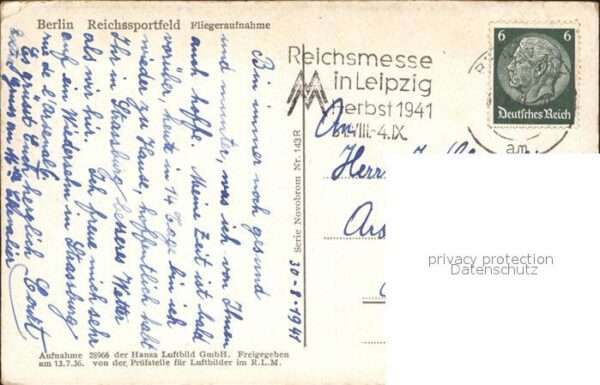 Berlin Reichssportfeld Fliegeraufnahme
Bin immer noch gesund
und munter, was ich von Ihnen
auch hoffe. Meine Zeit ist bald
vorüber, heute in 14 Tage bin ich
wieder zu Hause, hoffentlich habt
Ihr in Strasburg besseres Wetter
als wir hier. Ich freue mich sehr
auf ein Wiedersehn in Strasburg
rue de l'arsenal.
Es grüsst Euch herzlich
Aufnahme 28966 der Hansa Luftbild GmbH. Freigegeben
am 13.7.36. von der Prüfstelle für Luftbilder im R.L.M.
Serie Novobrom Nr. 143 R
30-8-1941
Reichsmesse
in Leipzig
Herbst 1941
31.VIII.-4.IX.
6 6
Deutsches Reich
An
Herrn
privacy protection
Datenschutz